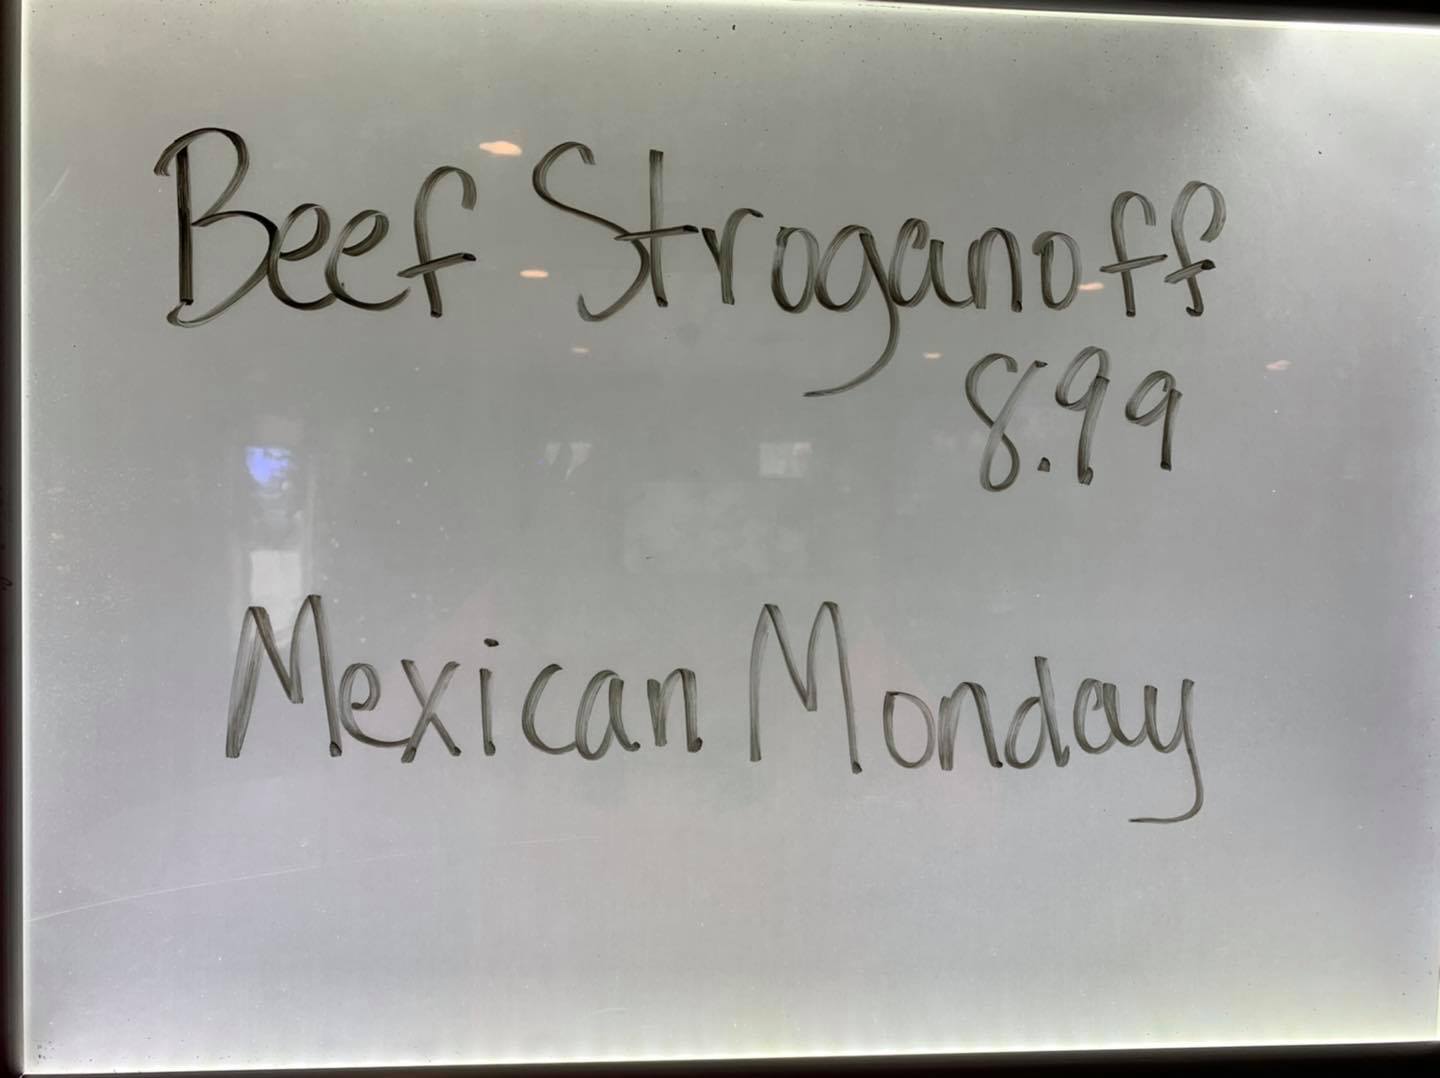 Beef Stroganoff
8.99
Mexican Monday